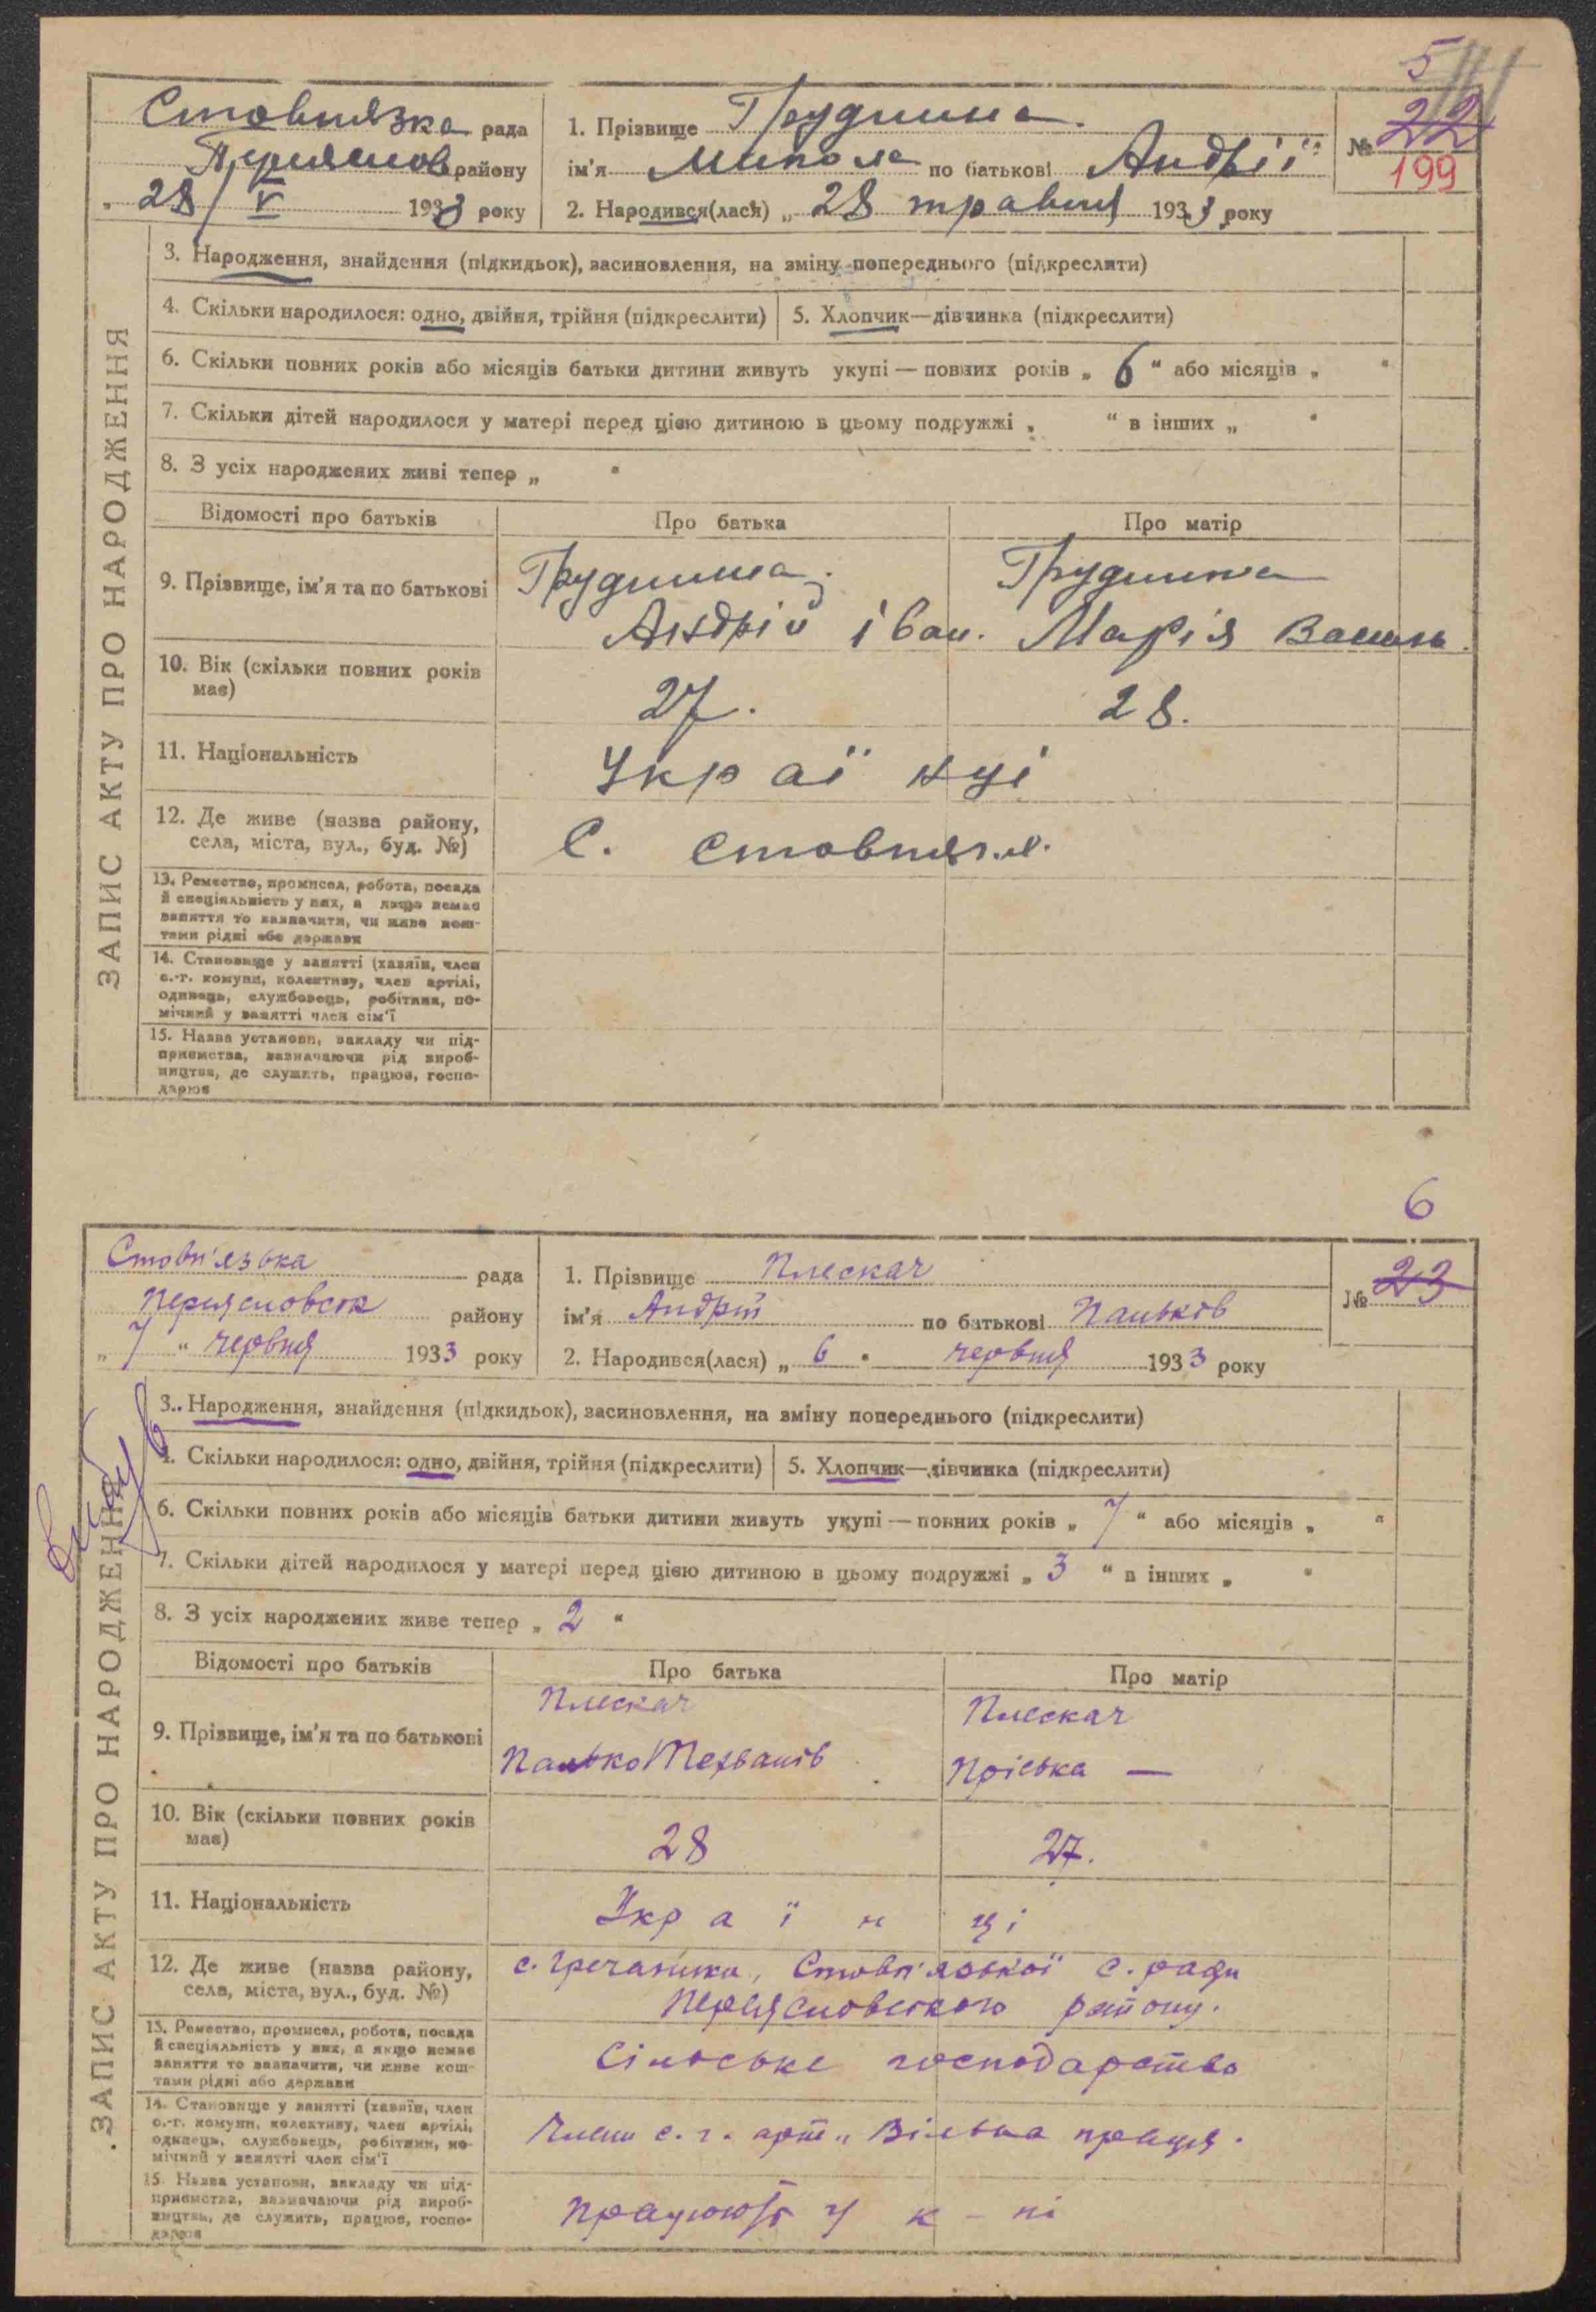 5
Стовпязка рада
Переяслов району
„ 28/V 1933 року
1. Прізвище Грудшина
ім'я Микола по батькові Андрії
2. Народився(лася) „ 28 травня 1933 року
№ 22
199
ЗАПИС АКТУ ПРО НАРОДЖЕННЯ
3. Народження, знайдення (підкидьок), засиновлення, на зміну попереднього (підкреслити)
4. Скільки народилося: одно, двійня, трійня (підкреслити) 5. Хлопчик—дівчинка (підкреслити)
6. Скільки повних років або місяців батьки дитини живуть укупі — повних років „ 6 “ або місяців „ “
7. Скільки дітей народилося у матері перед цією дитиною в цьому подружжі „ “ в інших „ “
8. З усіх народжених живі тепер „ “
Відомості про батьків Про батька Про матір
9. Прізвище, ім'я та по батькові
Андрій Іван. Марія Василь.
10. Вік (скільки повних років
має)
27. 28.
11. Національність Українці
12. Де живе (назва району,
села, міста, вул., буд. №)
С. Стовпяги.
13. Ремество, промисел, робота, посада
й спеціяльність у них, а якщо немає
заняття то зазначити, чи живе кош-
тами рідні або держави
14. Становище у занятті (хазяїн, член
с.-г. комуни, колективу, член артілі,
одинець, службовець, робітник, по-
мічний у занятті член сім'ї
15. Назва установи, закладу чи під-
приємства, зазначаючи рід вироб-
ництва, де служить, працює, госпо-
дарює
6
Стовп'язька рада
Переясловськ району
„ 7 “ червня 1933 року
1. Прізвище Плескач
ім'я Андрій по батькові Паньків
2. Народився(лася) „ 6 “ червня 1933 року
№ 23
ЗАПИС АКТУ ПРО НАРОДЖЕННЯ
3. Народження, знайдення (підкидьок), засиновлення, на зміну попереднього (підкреслити)
4. Скільки народилося: одно, двійня, трійня (підкреслити) 5. Хлопчик—дівчинка (підкреслити)
6. Скільки повних років або місяців батьки дитини живуть укупі — повних років „ 7 “ або місяців „ “
7. Скільки дітей народилося у матері перед цією дитиною в цьому подружжі „ 3 “ в інших „ “
8. З усіх народжених живе тепер „ 2 “
Відомості про батьків Про батька Про матір
Плескач Плескач
9. Прізвище, ім'я та по батькові
Панько Пріська —
10. Вік (скільки повних років
має)
28 27.
11. Національність Українці
12. Де живе (назва району,
села, міста, вул., буд. №)
с. Гречаники, Стовп'язької с. ради
Переясловського району.
13. Ремество, промисел, робота, посада
й спеціяльність у них, а якщо немає
заняття то зазначити, чи живе кош-
тами рідні або держави
Сільське господарство
14. Становище у занятті (хазяїн, член
с.-г. комуни, колективу, член артілі,
одинець, службовець, робітник, по-
мічний у занятті член сім'ї
Члени с. г. арт. „Вільна праця.
15. Назва установи, закладу чи під-
приємства, зазначаючи рід вироб-
ництва, де служить, працює, госпо-
дарює
Працюють у к-пі